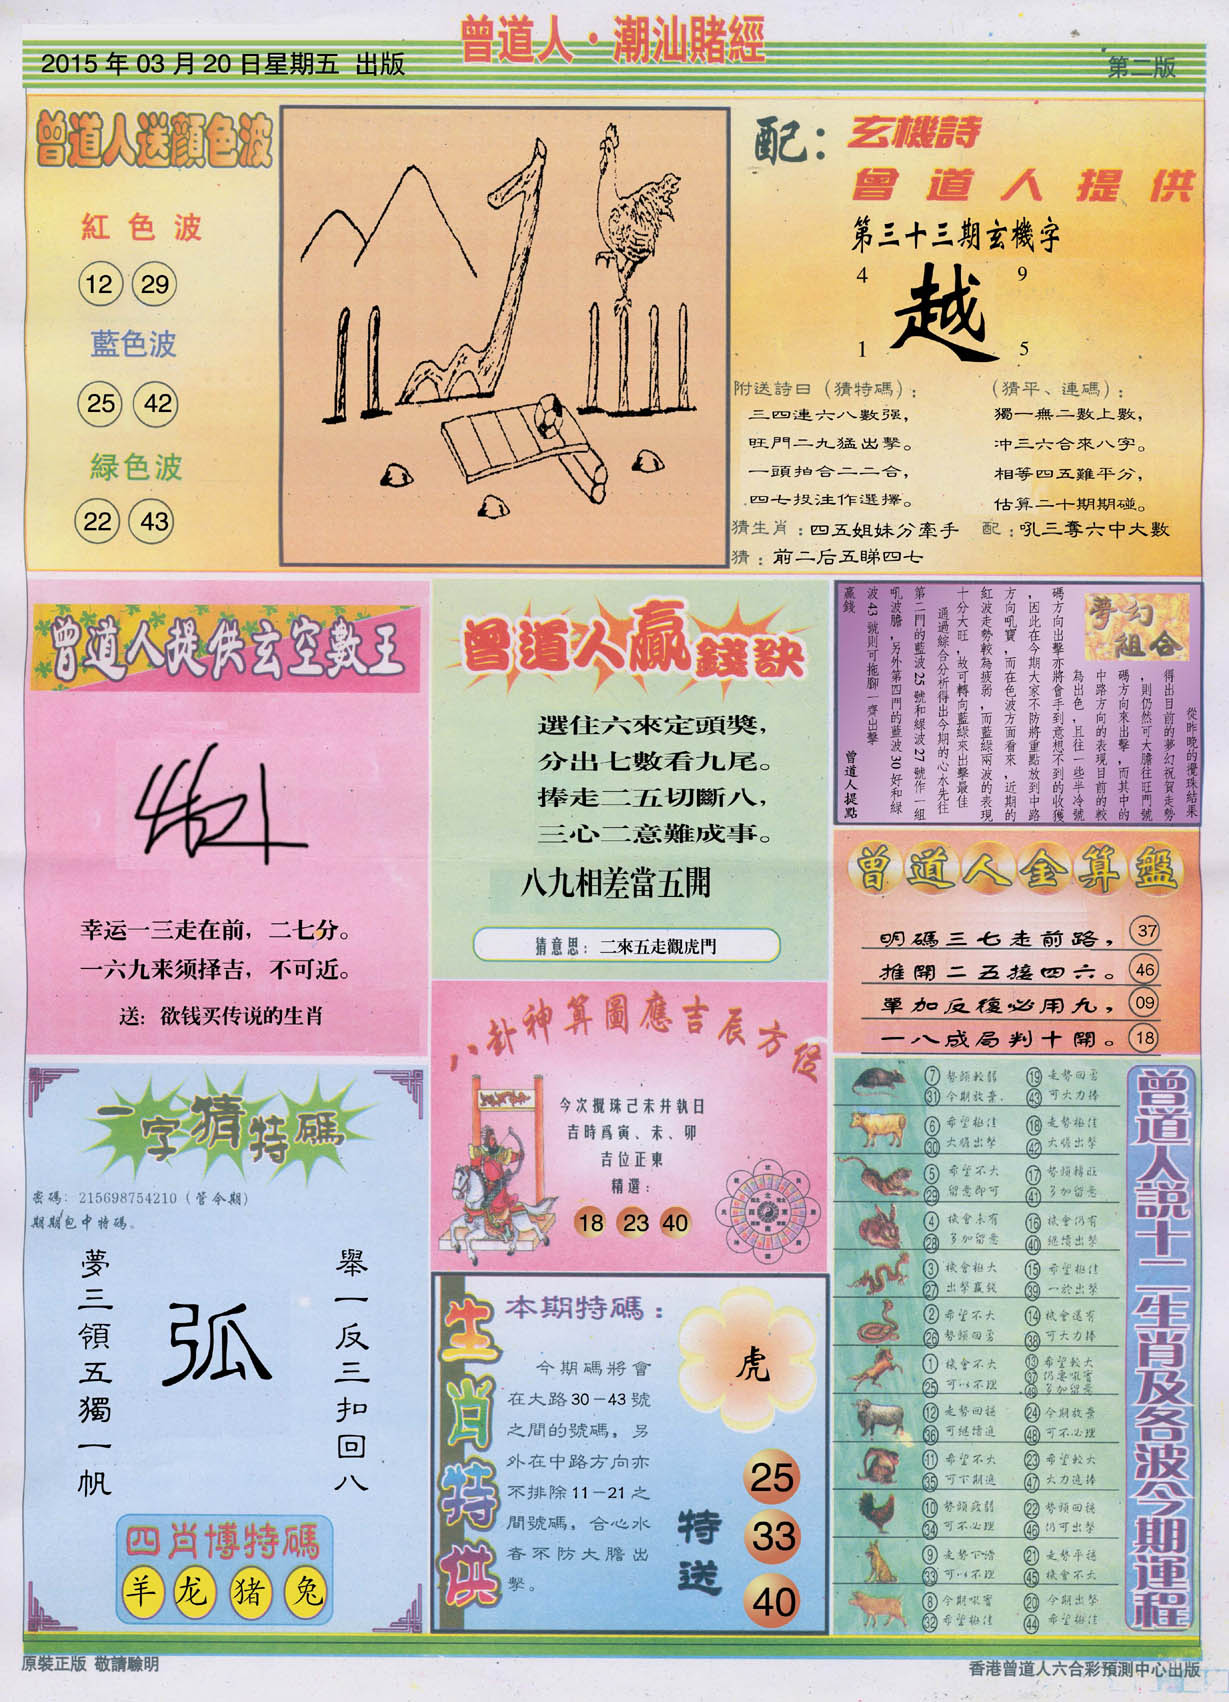 曾道人·潮汕賭經
2015年03月20日星期五 出版
第二版
曾道人送顔色波
紅色波
12 29
藍色波
25 42
緑色波
22 43
配：玄機詩
曾道人提供
第三十三期玄機字
4 9
越
1 5
附送詩曰（猜特碼）：
三四連六八數强，
旺門二九猛出擊。
一頭拍合二二合，
四七投注作選擇。
（猜平、連碼）：
獨一無二數上數，
冲三六合來八字。
相等四五難平分，
估算二十期期碰。
猜生肖：四五姐妹分牽手
配：吼三奪六中大數
猜：前二后五睇四七
曾道人提供玄空數王
幸运一三走在前，二七分。
一六九来须择吉，不可近。
送：欲钱买传说的生肖
曾道人贏錢訣
選住六來定頭獎，
分出七數看九尾。
捧走二五切斷八，
三心二意難成事。
八九相差當五開
猜意思：二來五走觀虎門
夢幻組合
從昨晚的攪珠結果
得出目前的夢幻祝賀走勢
，則仍然可大膽往旺門號
碼方向來出擊，而其中的
中路方向的表現目前的較
為出色，且往一些半冷號
碼方向出擊亦將會手到意想不到的收獲
，因此在今期大家不防將重點放到中路
方向吼寶，而在色波方面看來，近期的
紅波走勢較為疲弱，而藍綠兩波的表現
十分大旺，故可轉向藍綠來出擊最佳
通過綜合分析得出今期的心水先往
第二門的藍波25號和綠波27號作一組
吼波膽，另外第四門的藍波30好和綠
波43號則可拖腳一齊出擊
贏錢
曾道人提點
曾道人金算盤
明碼三七走前路， 37
推開二五接四六。 46
單加反復必用九， 09
一八成局判十開。 18
八卦神算圖應吉辰方位
今次攪珠己未井執日
吉時爲寅、未、卯
吉位正東
精選：
18 23 40
一字猜特碼
密碼：215698754210（管今期）
期期包中特碼。
舉一反三扣回八
弧
夢三領五獨一帆
四肖博特碼
羊 龙 猪 兔
生肖特供
本期特碼：
今期碼將會
在大路30-43號
之間的號碼，另
外在中路方向亦
不排除11-21之
間號碼，合心水
者不防大膽出
擊。
虎
特送
25
33
40
曾道人説十二生肖及各波今期運程
7 勢頭較弱 19 走勢回勇
31 今期放棄 43 可大力捧
6 希望極佳 18 走勢極佳
30 大膽出擊 42 大膽出擊
5 希望不大 17 勢頭轉旺
29 留意即可 41 多加留意
4 機會未有 16 機會仍有
28 多加留意 40 繼續出擊
3 機會極大 15 希望極佳
27 出擊贏錢 39 一於出擊
2 希望不大 14 機會還有
26 勢頭回勇 38 可大力捧
1 機會不大 13 希望較大
25 可以不理 37 仍要吸寶
49 多加留意
12 走勢回穩 24 今期放棄
36 可繼續追 48 可不必理
11 希望不大 23 希望較大
35 可下期追 47 大力追捧
10 勢頭疲弱 22 勢頭回穩
34 可不必理 46 仍可出擊
9 走勢下滑 21 走勢平穩
33 可以不理 45 機會不大
8 今期吸寶 20 今期出擊
32 希望極佳 44 希望極佳
原裝正版 敬請驗明
香港曾道人六合彩預測中心出版